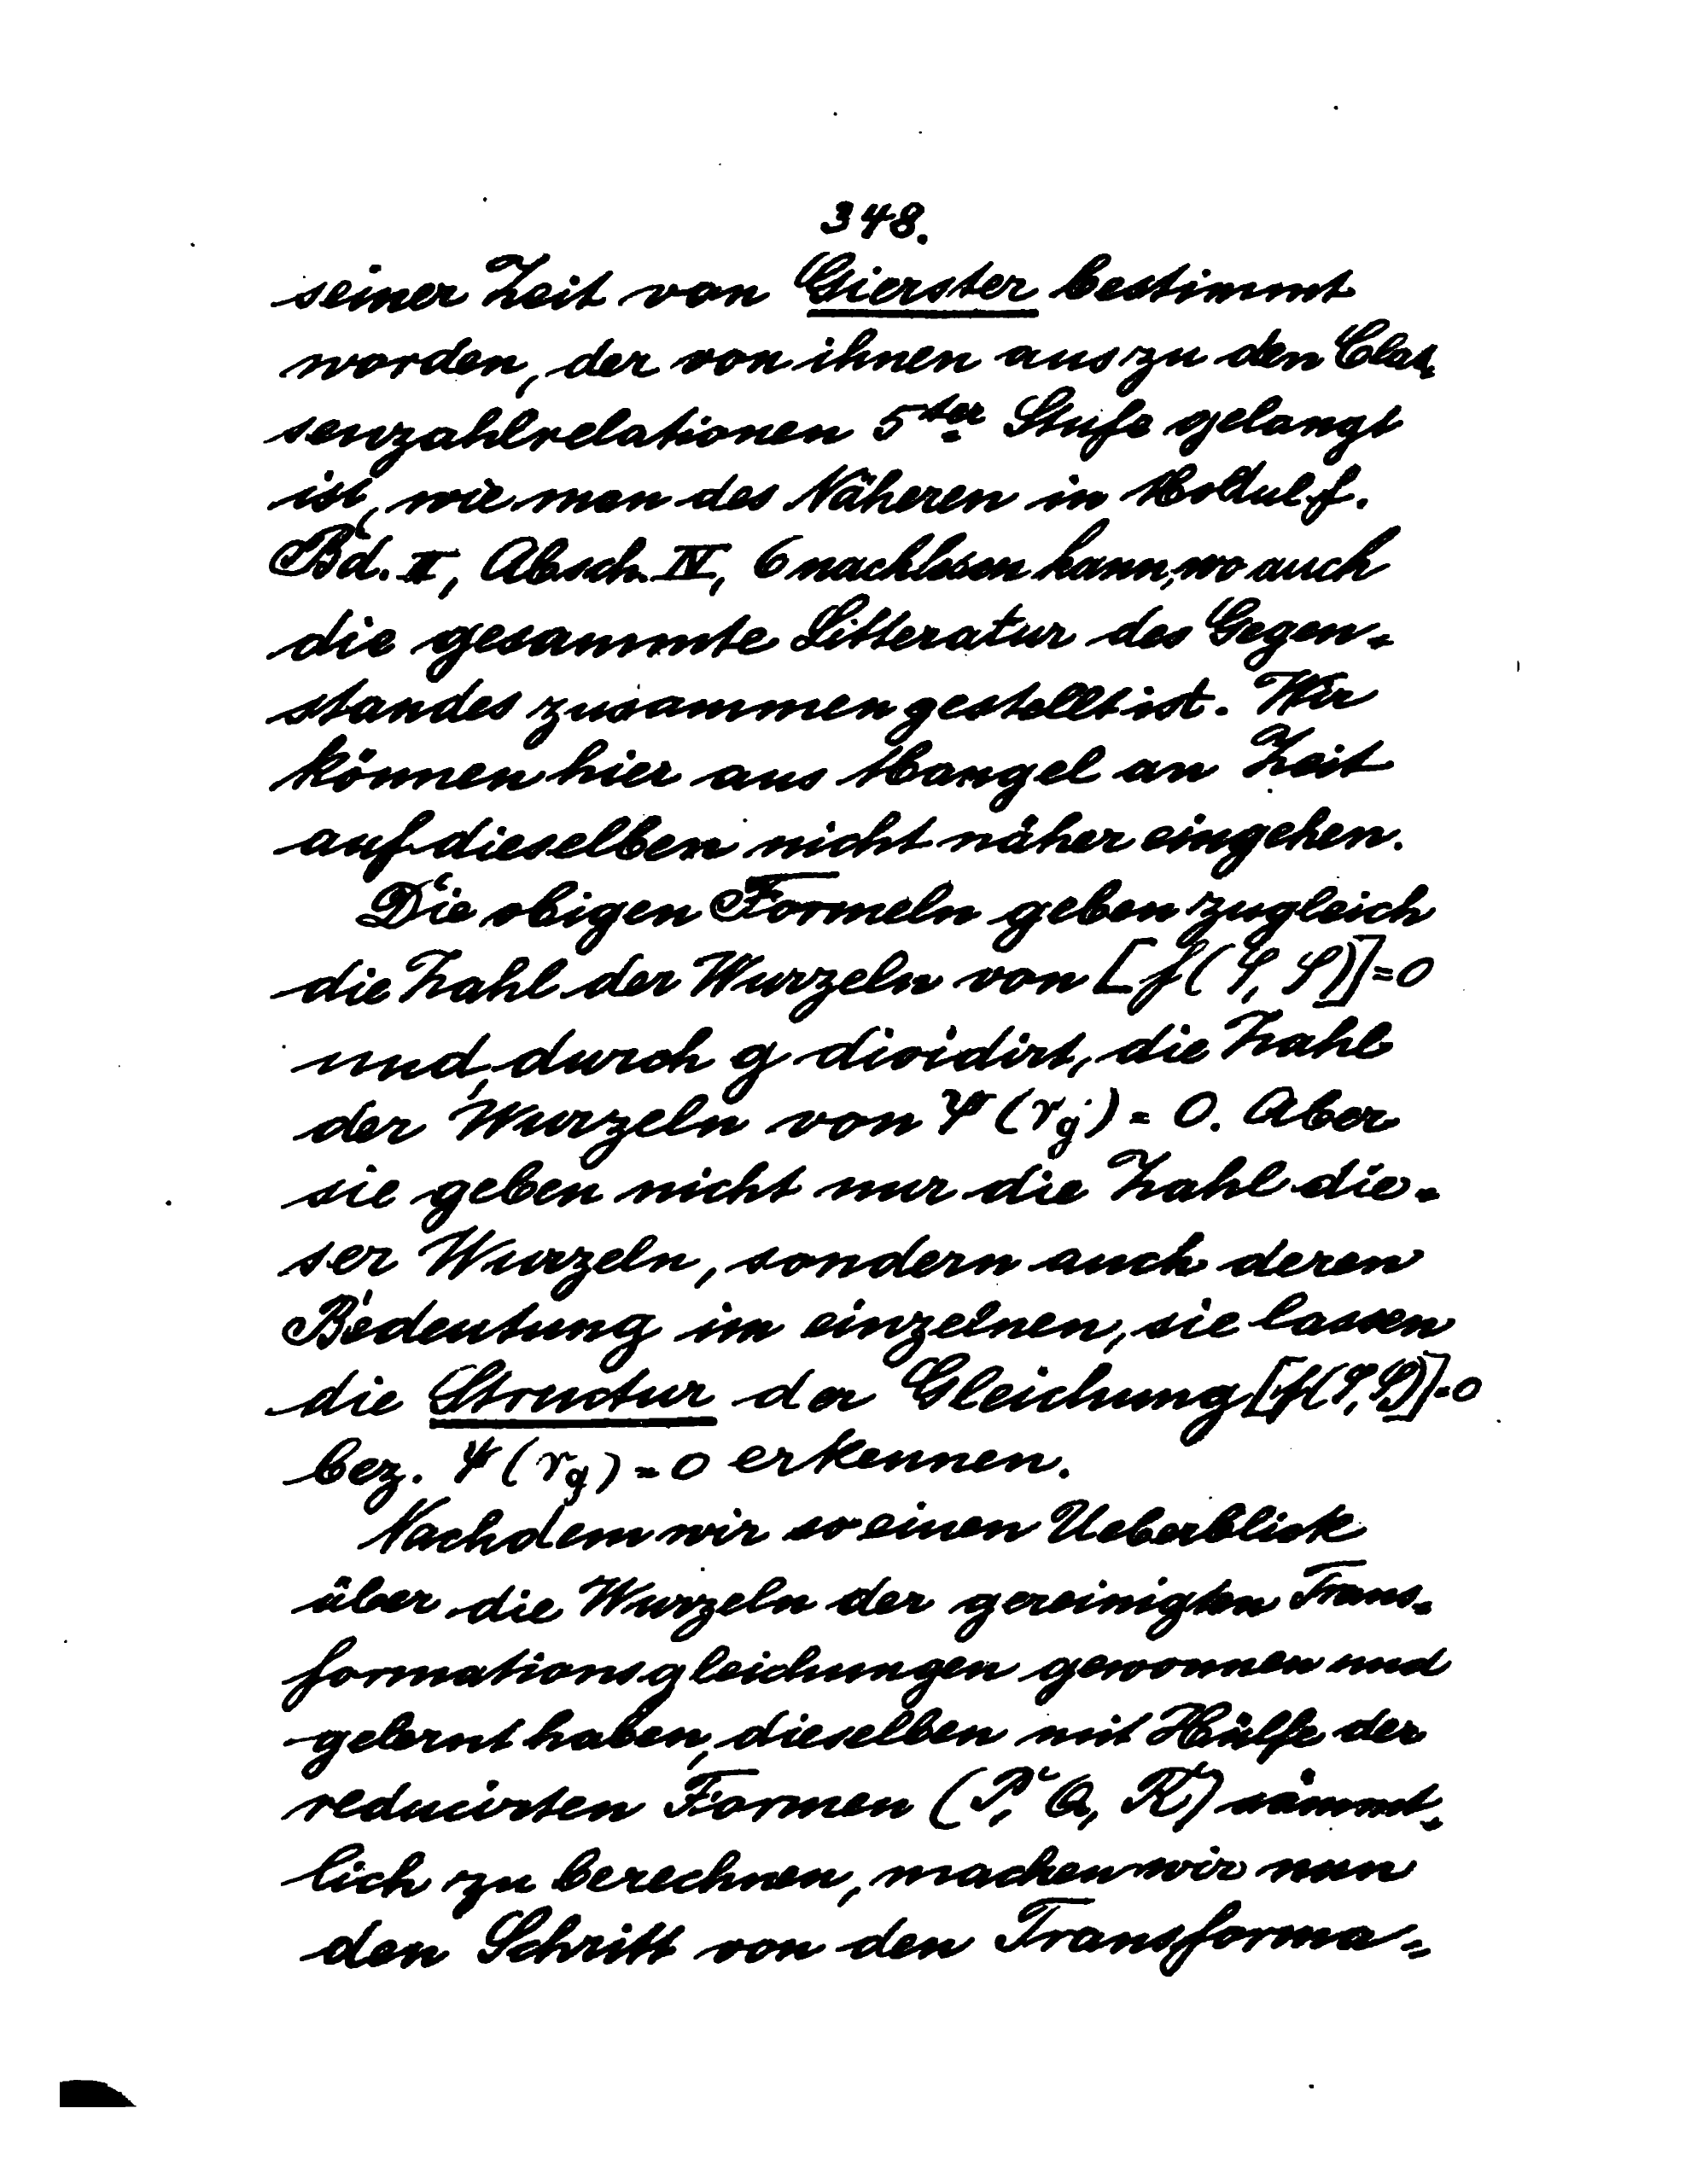 348.
seiner Zeit von Gierster bestimmt
worden, der von ihnen aus zu den Clas-
senzahlrelationen 5ter Stufe gelangt
ist, wie man des Näheren in Modulf.
Bd. II, Absch. IV, 6 nachlesen kann, wo auch
die gesammte Litteratur des Gegen-
standes zusammengestellt ist. Wir
können hier aus Mangel an Zeit
auf dieselben nicht näher eingehen.
Die obigen Formeln geben zugleich
die Zahl der Wurzeln von [f(φ, φ)]=0
und, durch g dividirt, die Zahl
der Wurzeln von Ψ(r_g) = 0. Aber
sie geben nicht nur die Zahl die-
ser Wurzeln, sondern auch deren
Bedeutung im einzelnen, sie lassen
die Structur der Gleichung [f(φ, φ)]=0
bez. Ψ(r_g) = 0 erkennen.
Nachdem wir so einen Ueberblick
über die Wurzeln der gereinigten Trans-
formationsgleichungen gewonnen und
gelernt haben, dieselben mit Hülfe der
reducirten Formen (P, Q, R) sämmt-
lich zu berechnen, machen wir nun
den Schritt von den Transforma-